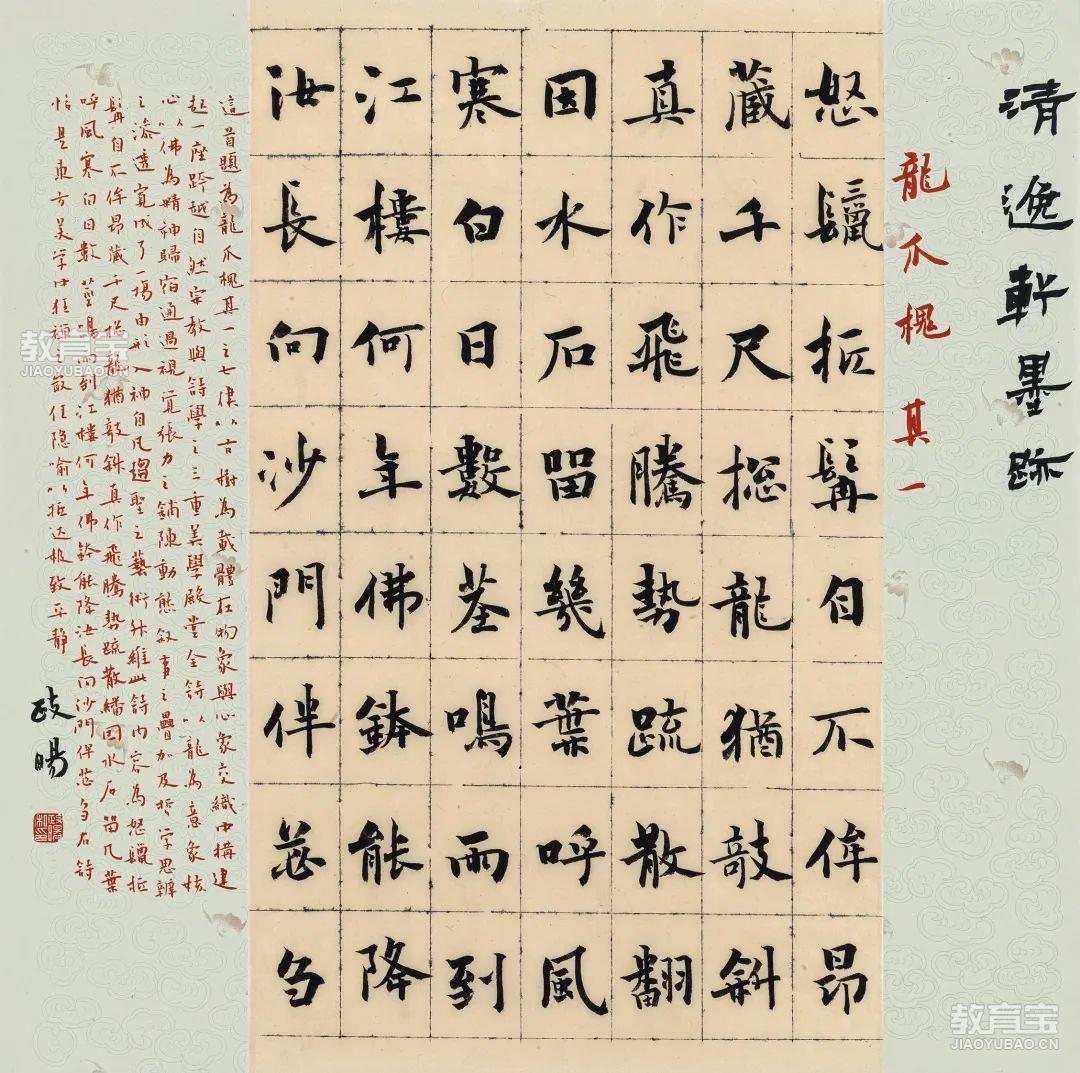 清逸軒墨跡
龍爪槐 其一
怒鬣拒髯自不侔昂
藏千尺㧾龍猶敧斜
真作飛騰勢疏散翻
因水石留幾葉呼風
寒白日數莖鳴雨到
江樓何年佛鉢能降
汝長向沙門伴苾芻
這首題為龍爪槐其一之七律以古樹為載體在物象與心象交織中構建
起一座跨越自然宗教與詩學之三重美學殿堂全詩以龍為意象核
心以佛為精神歸宿通過視覺張力之鋪陳動態敘事之疊加及哲學思辨
之滲透完成了一場由形入神自凡趨聖之藝術升維此詩內容為怒鬣拒
髯自不侔昂藏千尺㧾龍猶敧斜真作飛騰勢疏散翻因水石留几葉
呼風寒白日數莖鳴雨到江樓何年佛鉢能降汝長向沙門伴苾芻右詩
恰是東方美學中狂禪最佳隱喻以狂达极致平静
政暘
教育宝
JIAOYUBAO.CN
教育宝
JIAOYUBAO.CN